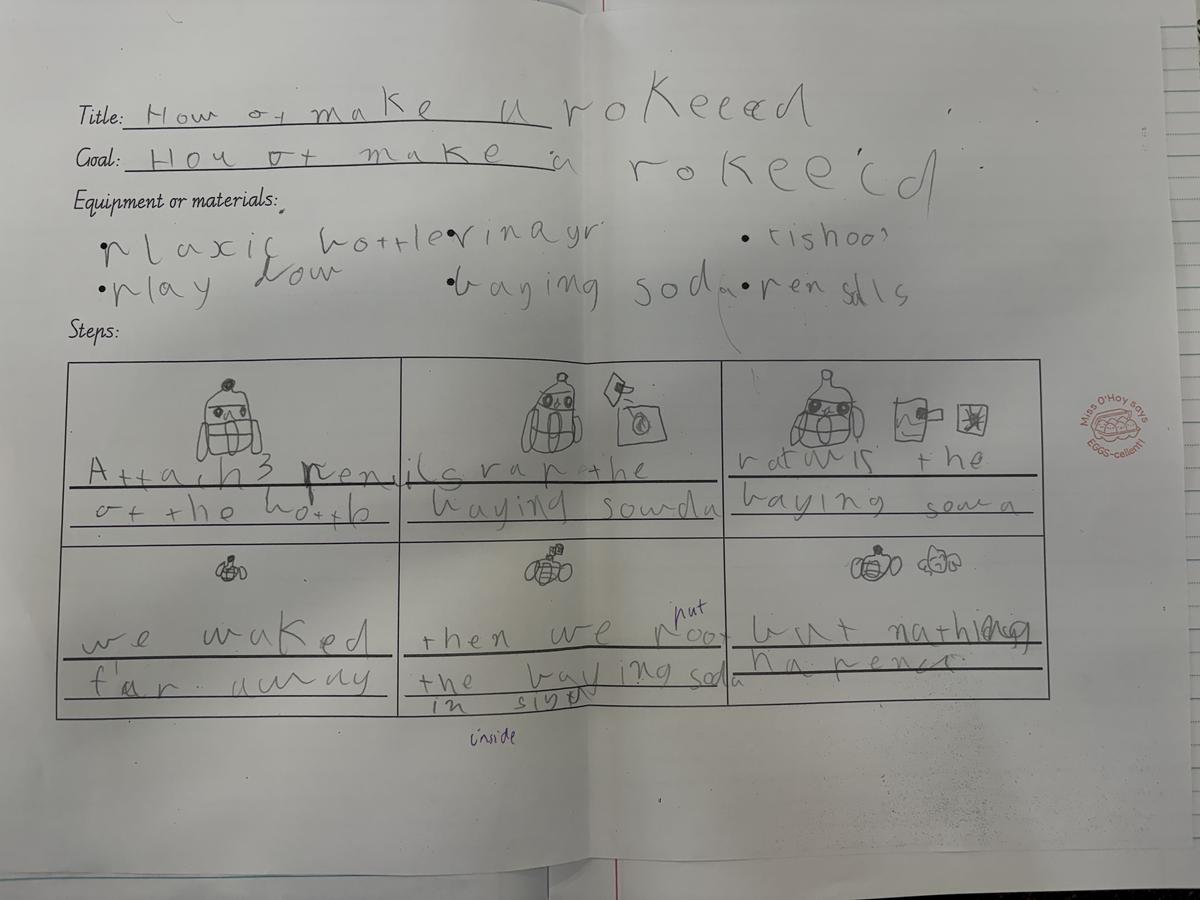 Title: How ot make a rokeeed
Goal: How ot make a rokee'cd
Equipment or materials:
• plaxic bottle • vinayr • tishoo
• play dow • baying soda • pensdls
Steps:
Attach 3 pencils
ot the bottb
rap the
baying sounda
the
baying souda
we waked
far away
put
then we poot
the baying soda
in sigd
inside
but nathing
hapend
Miss O'Hoy says
EGGS-cellent!